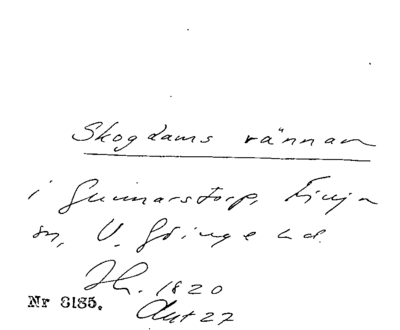 Skogdams rännan
i Gunnarstorp, Finja
sn, V. Göinge hd.
Jh. 1820
Aut 27
Nr 8185.